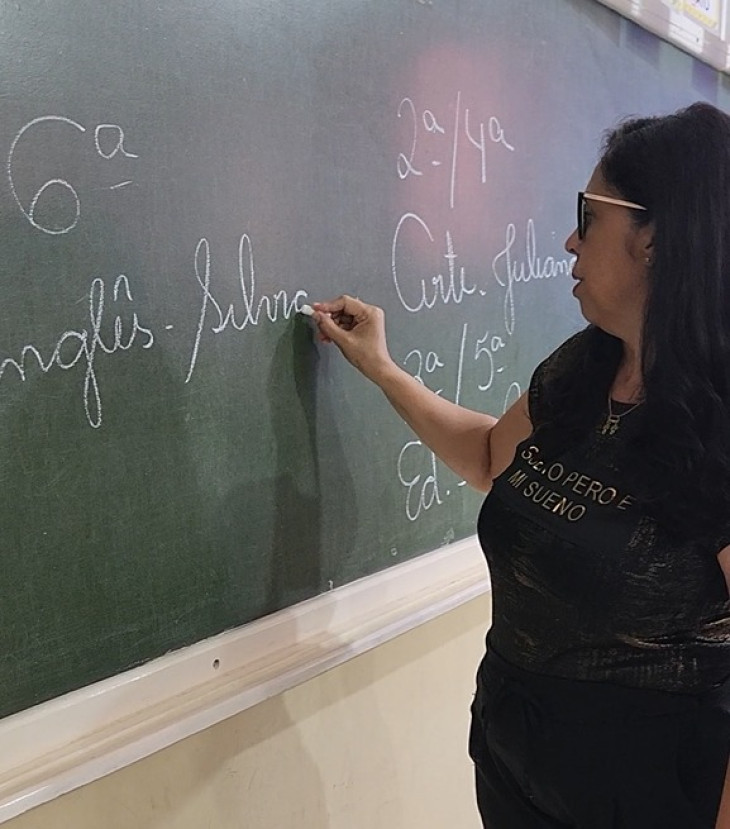 6ª
Inglês - Silvia
2ª/4ª
Arte. Juliana
3ª/5ª
Ed. -
SUEÑO PERO E
MI SUENO